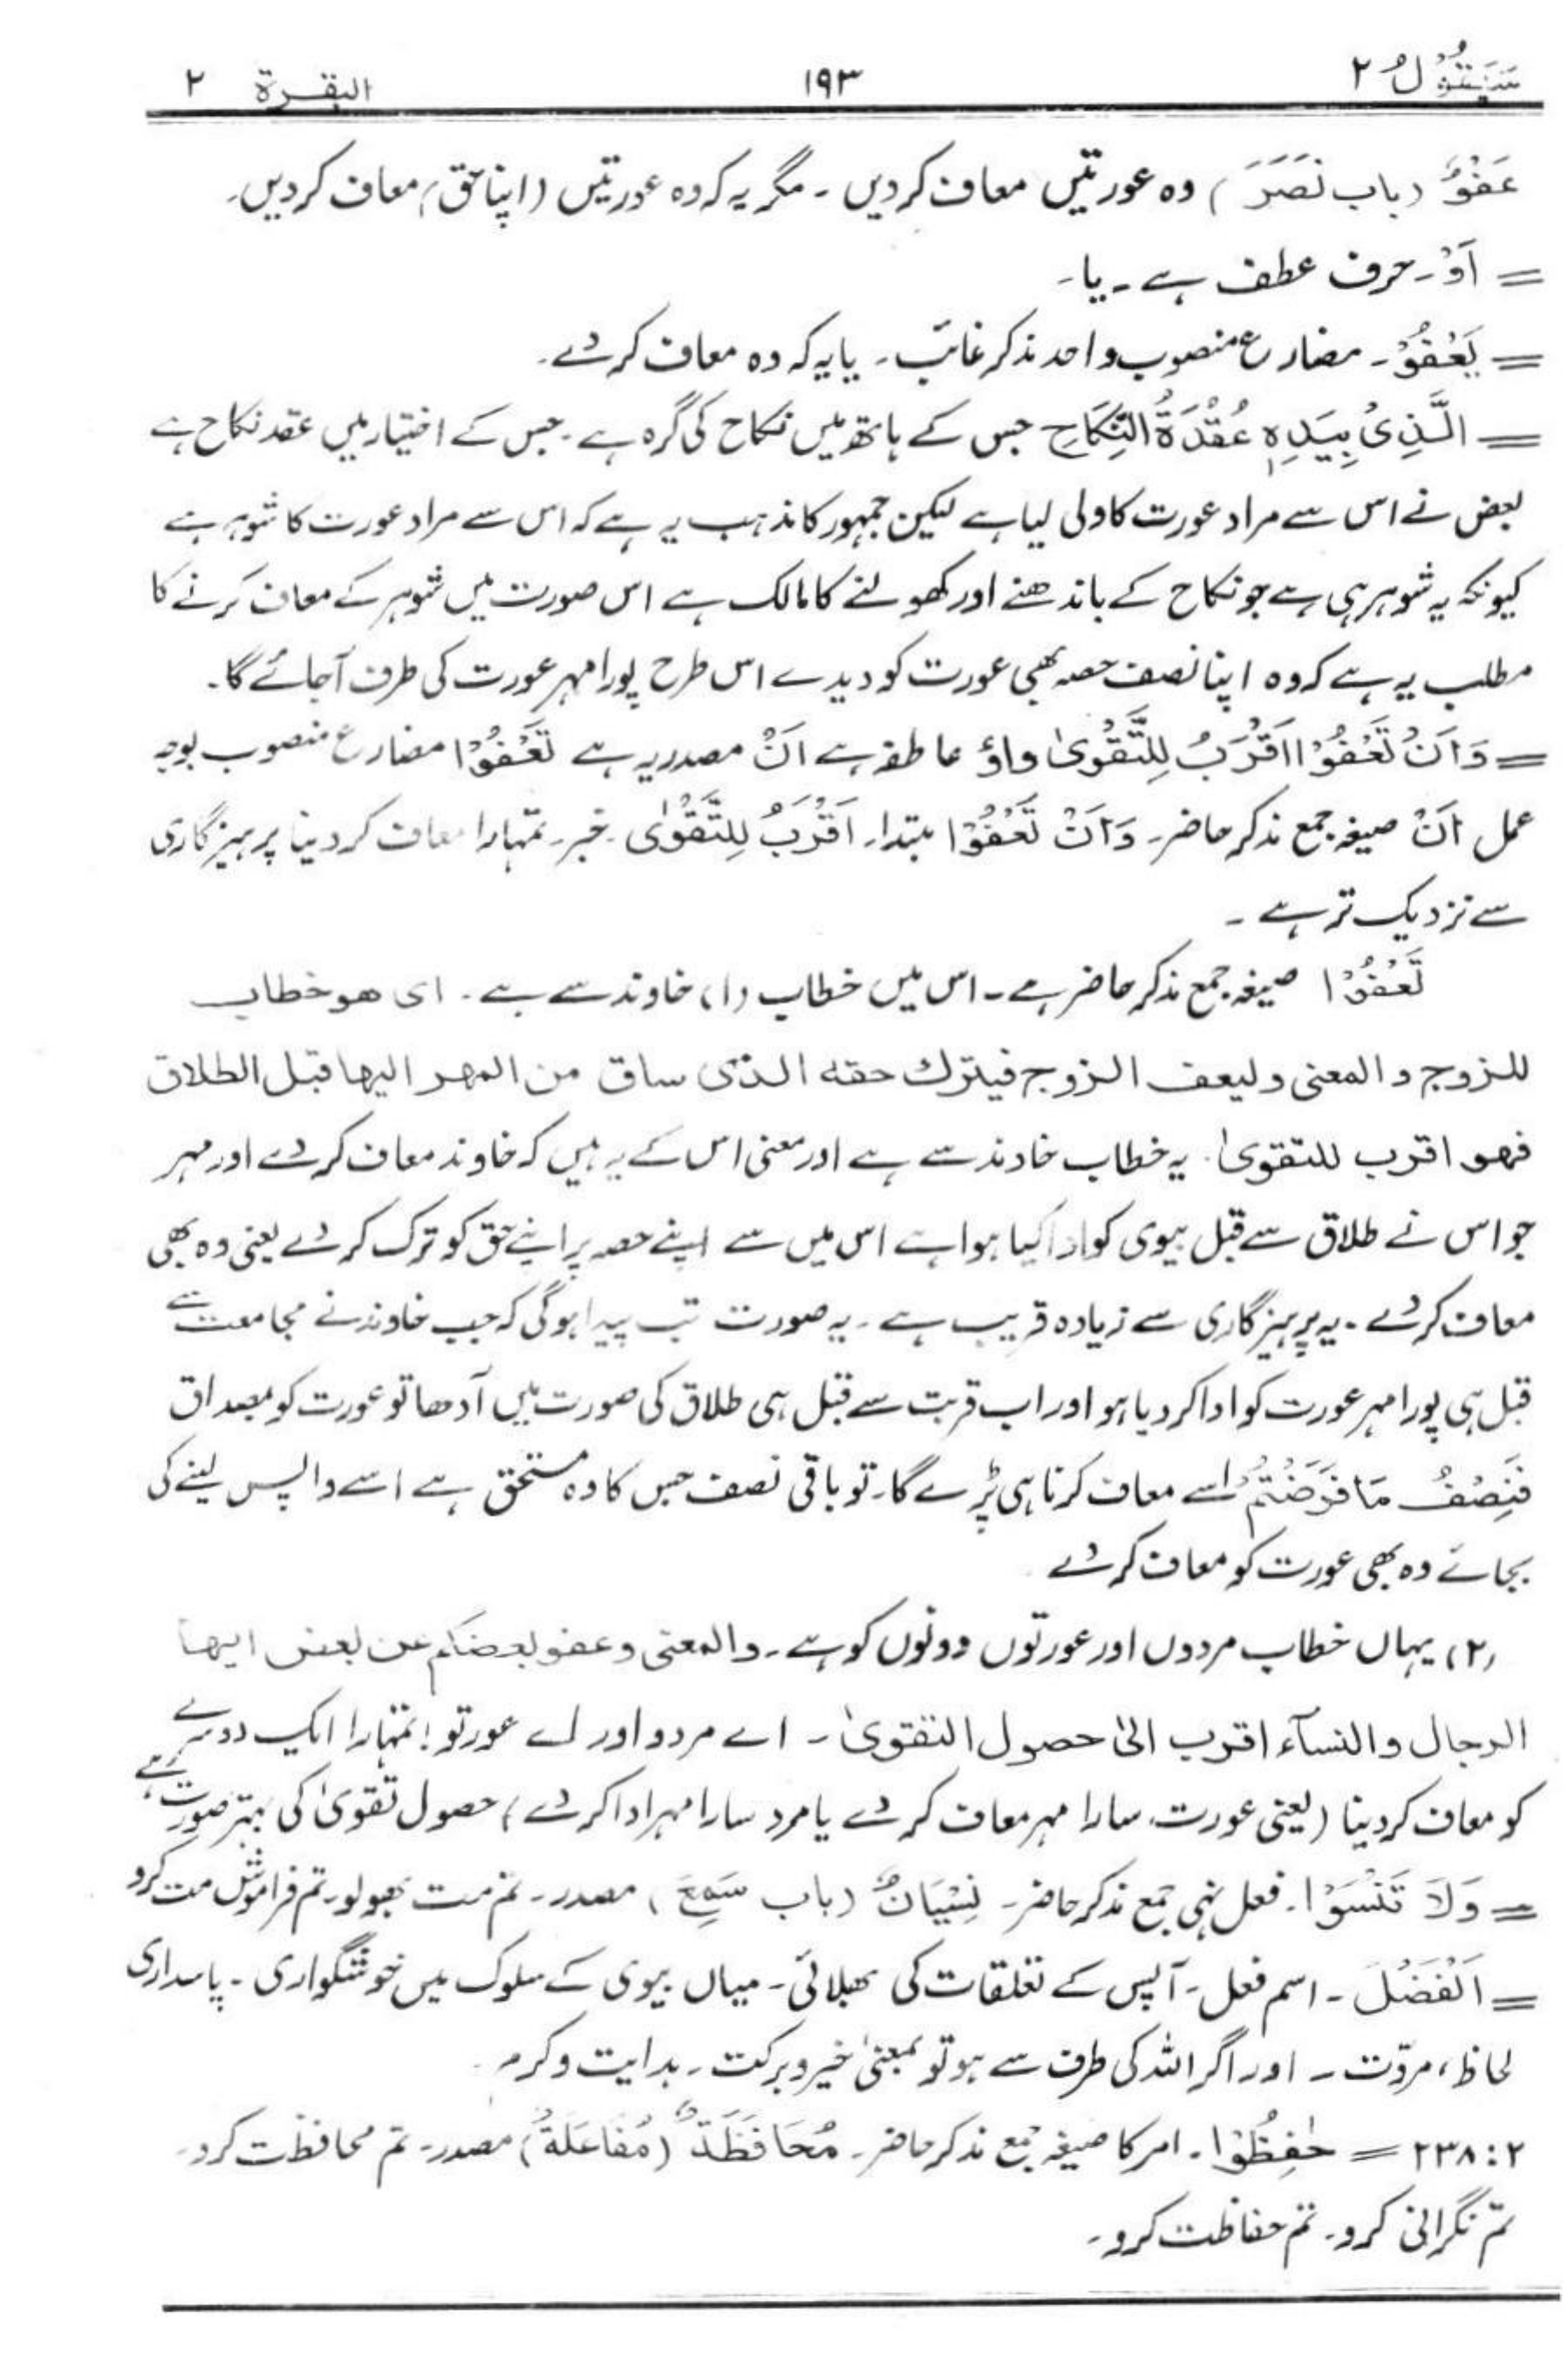 سَيَقُوْلُ ۲ ۱۹۳ البقرة ۲
عَفْوٌ (باب نَصَرَ) وہ عورتیں معاف کردیں ۔ مگر یہ کہ وہ عورتیں (اپنا حق) معاف کردیں۔
= اَوْ۔ حرف عطف ہے ۔ یا۔
= يَعْفُوَ۔ مضارع منصوب واحد مذکر غائب ۔ یا یہ کہ وہ معاف کردے۔
= الَّذِىْ بِيَدِهٖ عُقْدَةُ النِّكَاحِ جس کے ہاتھ میں نکاح کی گرہ ہے ۔ جس کے اختیار میں عقد نکاح ہے
بعض نے اس سے مراد عورت کا ولی لیا ہے لیکن جمہور کا مذہب یہ ہے کہ اس سے مراد عورت کا شوہر ہے
کیونکہ یہ شوہر ہی ہے جو نکاح کے باندھنے اور کھولنے کا مالک ہے اس صورت میں شوہر کے معاف کرنے کا
مطلب یہ ہے کہ وہ اپنا نصف حصہ بھی عورت کو دیدے اس طرح پورا مہر عورت کی طرف آجائے گا۔
= وَاَنْ تَعْفُوْا اَقْرَبُ لِلتَّقْوىٰ واؤ عاطفہ ہے اَنْ مصدریہ ہے تَعْفُوْا مضارع منصوب بوجہ
عمل اَنْ صیغہ جمع مذکر حاضر۔ وَاَنْ تَعْفُوْا مبتدا۔ اَقْرَبُ لِلتَّقْوٰى۔ خبر۔ تمہارا معاف کردینا پرہیزگاری
سے نزدیک تر ہے ۔
تَعْفُوْا صیغہ جمع مذکر حاضر ہے ۔ اس میں خطاب (۱) خاوند سے ہے ۔ اى هو خطاب
للزوج والمعنى وليعف الزوج فيترك حقه الذى ساق من المهر اليها قبل الطلاق
فهو اقرب للتقوىٰ۔ یہ خطاب خاوند سے ہے اور معنی اس کے یہ ہیں کہ خاوند معاف کردے اور مہر
جو اس نے طلاق سے قبل بیوی کو ادا کیا ہوا ہے اس میں سے اپنے حصہ پر اپنے حق کو ترک کردے یعنی وہ بھی
معاف کردے ۔ یہ پرہیزگاری سے زیادہ قریب ہے ۔ یہ صورت تب پیدا ہوگی کہ جب خاوند نے مجامعت سے
قبل ہی پورا مہر عورت کو ادا کردیا ہو اور اب قربت سے قبل ہی طلاق کی صورت میں آدھا تو عورت کو بمصداق
فَنِصْفُ مَا فَرَضْتُمْ اسے معاف کرنا ہی پڑے گا۔ تو باقی نصف جس کا وہ مستحق ہے اسے واپس لینے کی
بجائے وہ بھی عورت کو معاف کردے
(۲) یہاں خطاب مردوں اور عورتوں دونوں کو ہے ۔ والمعنى وعفو بعضكم عن بعض ايها
الرجال والنسآء اقرب الىٰ حصول التقوىٰ ۔ اے مردو اور اے عورتو! تمہارا ایک دوسرے
کو معاف کردینا (یعنی عورت سارا مہر معاف کردے یا مرد سارا مہر ادا کردے) حصول تقویٰ کی بہتر صورت ہے
= وَلَا تَنْسَوْا۔ فعل نہی جمع مذکر حاضر۔ نِسْيَانٌ (باب سَمِعَ) مصدر۔ تم مت بھولو۔ تم فراموش مت کرو
= اَلْفَضْلَ ۔ اسم فعل۔ آپس کے تعلقات کی بھلائی ۔ میاں بیوی کے سلوک میں خوشگواری ۔ پاسداری
لحاظ، مروّت ۔ اور اگر اللہ کی طرف سے ہو تو بمعنیٰ خیر و برکت ۔ ہدایت و کرم ۔
۲:۲۳۸ = حٰفِظُوْا۔ امر کا صیغہ جمع مذکر حاضر۔ مُحَافَظَةٌ (مُفَاعَلَةٌ) مصدر۔ تم محافظت کرو۔
تم نگرانی کرو۔ تم حفاظت کرو۔